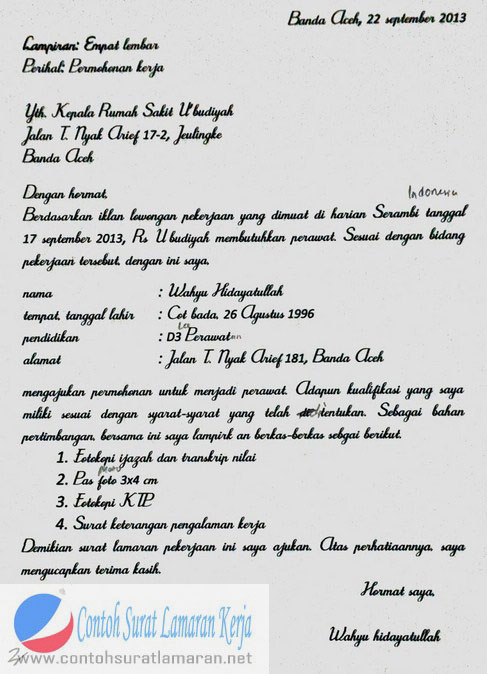 Banda Aceh, 22 september 2013
Lampiran: Empat lembar
Perihal: Permohonan kerja
Yth. Kepala Rumah Sakit U'budiyah
Jalan T. Nyak Arief 17-2, Jeulingke
Banda Aceh
Dengan hormat,
Indonesia
Berdasarkan iklan lowongan pekerjaan yang dimuat di harian Serambi tanggal
17 september 2013, Rs Ubudiyah membutuhkan perawat. Sesuai dengan bidang
pekerjaan tersebut, dengan ini saya,
nama : Wahyu Hidayatullah
tempat, tanggal lahir : Cot bada, 26 Agustus 1996
pendidikan : D3 Perawatan
alamat : Jalan T. Nyak Arief 181, Banda Aceh
mengajukan permohonan untuk menjadi perawat. Adapun kualifikasi yang saya
miliki sesuai dengan syarat-syarat yang telah ditentukan. Sebagai bahan
pertimbangan, bersama ini saya lampirk an berkas-berkas sebgai berikut.
1. Fotokopi ijazah dan transkrip nilai
2. Pas foto 3x4 cm
3. Fotokopi KTP
4. Surat keterangan pengalaman kerja
Demikian surat lamaran pekerjaan ini saya ajukan. Atas perhatiaannya, saya
mengucapkan terima kasih.
Hormat saya,
Contoh Surat Lamaran Kerja
Wahyu hidayatullah
www.contohsuratlamaran.net